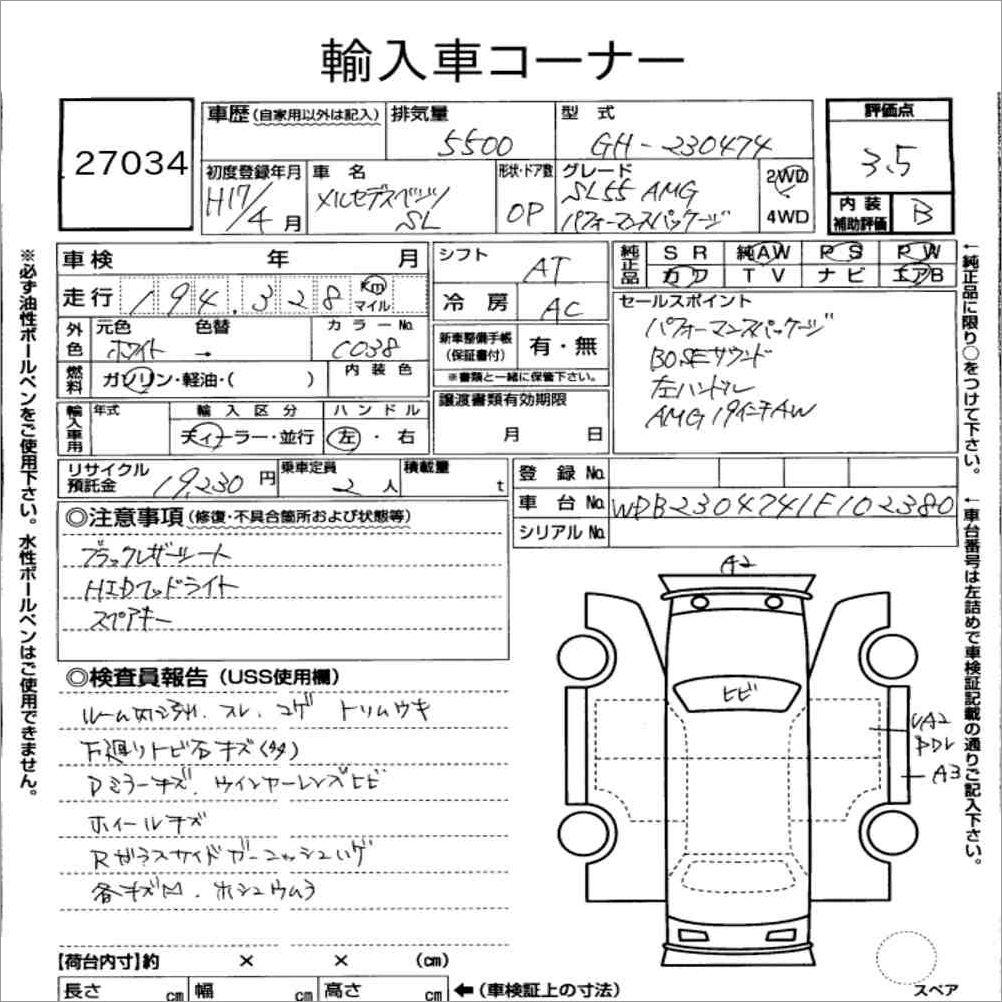 輸入車コーナー
27034
車歴 (自家用以外は記入)
排気量
5500
型 式
GH-230474
評価点
3.5
内装補助評価
B
初度登録年月
H17/4月
車 名
メルセデスベンツ
SL
形状・ドア数
OP
グレード
SL55 AMG
パフォーマンスパッケージ
2WD
4WD
車検 年 月
走行 194,328 Km マイル
シフト
AT
冷 房
AC
純正品
SR 純AW PS PW
カワ TV ナビ エアB
外色
元色 色替
ホワイト →
カラーNo.
C038
燃料
ガソリン・軽油・( )
内装色
新車整備手帳
(保証書付)
有・無
※書類と一緒に保管下さい。
セールスポイント
パフォーマンスパッケージ
BOSEサウンド
左ハンドル
AMG 19インチAW
輸入車用
年式
輸入区分
ディーラー・並行
ハンドル
左・右
譲渡書類有効期限
月 日
リサイクル
預託金
19,230 円
乗車定員
2 人
積載量
t
登録 No.
車台 No. WDB2304741F102380
シリアル No.
◎注意事項 (修復・不具合箇所および状態等)
ブラックレザーシート
HIDヘッドライト
スペアキー
◎検査員報告 (USS使用欄)
スレ、コゲ トリムウキ
下廻りトビ石キズ(多)
Dミラーキズ、ウインカーレンズヒビ
ホイールキズ
Rガラスサイドガーニッシュハゲ
各キズ、ホシュウムラ
A2
ヒビ
UA2
PDL
A3
【荷台内寸】約 × × (cm)
長さ cm 幅 cm 高さ cm ←(車検証上の寸法)
スペア
※必ず油性ボールペンをご使用下さい。水性ボールペンはご使用できません。
←純正品に限り○をつけて下さい。
←車台番号は左詰めで車検証記載の通りご記入下さい。